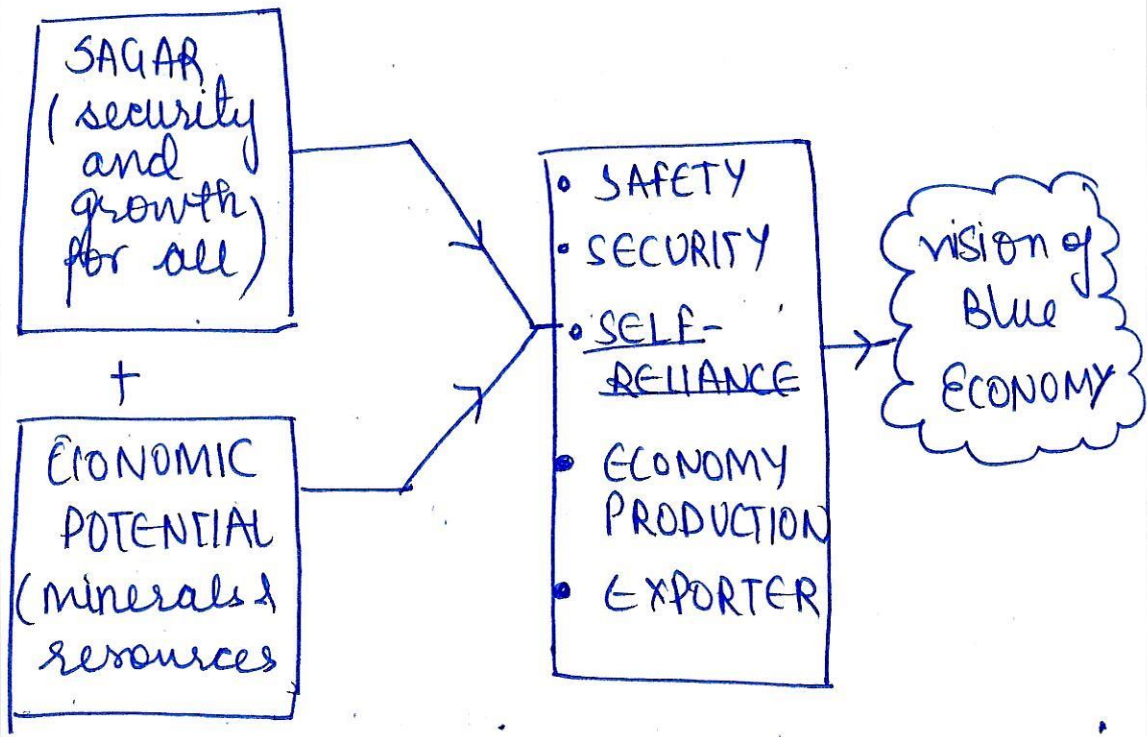 SAGAR
(security
and
growth
for all)
+
ECONOMIC
POTENTIAL
(minerals &
resources
• SAFETY
• SECURITY
• SELF-
RELIANCE
• ECONOMY
PRODUCTION
• EXPORTER
vision of
Blue
ECONOMY